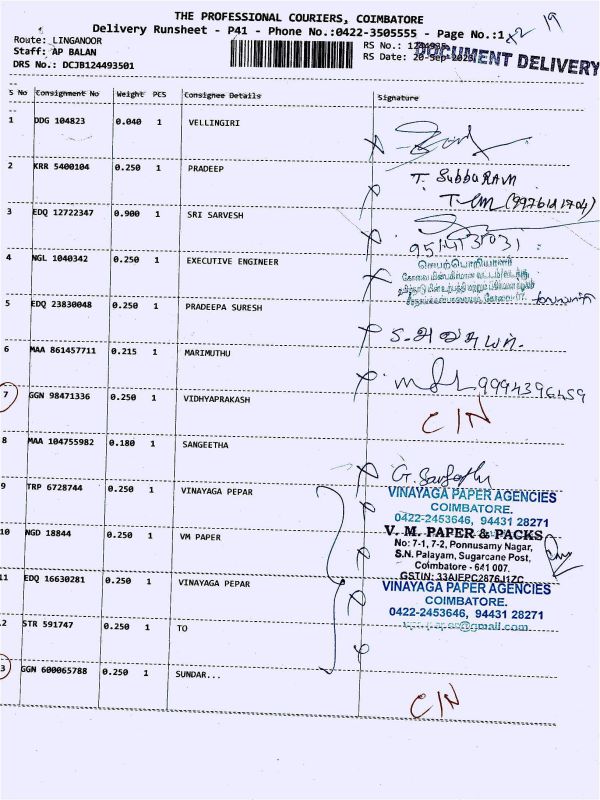 THE PROFESSIONAL COURIERS, COIMBATORE
Delivery Runsheet - P41 - Phone No.:0422-3505555 - Page No.:1
x2 19
Route: LINGANOOR
Staff: AP BALAN
DRS No.: DCJB124493501
RS No.:
RS Date: 20-Sep-2023
DOCUMENT DELIVERY
S No Consignment No Weight PCS Consignee Details Signature
1 DDG 104823 0.040 1 VELLINGIRI
2 KRR 5400104 0.250 1 PRADEEP
T. Subbaram
(9976141704)
3 EDQ 12722347 0.900 1 SRI SARVESH
9514131031
4 NGL 1040342 0.250 1 EXECUTIVE ENGINEER
செயற்பொறியாளர்
5 EDQ 23830048 0.250 1 PRADEEPA SURESH
6 MAA 861457711 0.215 1 MARIMUTHU
9994396459
7 GGN 98471336 0.250 1 VIDHYAPRAKASH
C/N
8 MAA 104755982 0.180 1 SANGEETHA
9 TRP 6728744 0.250 1 VINAYAGA PEPAR
VINAYAGA PAPER AGENCIES
COIMBATORE.
0422-2453646, 94431 28271
10 NGD 18844 0.250 1 VM PAPER
V. M. PAPER & PACKS
No: 7-1, 7-2, Ponnusamy Nagar,
S.N. Palayam, Sugarcane Post,
Coimbatore - 641 007.
GSTIN: 33AIEPC2876J1ZC
11 EDQ 16630281 0.250 1 VINAYAGA PEPAR
VINAYAGA PAPER AGENCIES
COIMBATORE.
0422-2453646, 94431 28271
2 STR 591747 0.250 1 TO
3 GGN 600065788 0.250 1 SUNDAR...
C/N